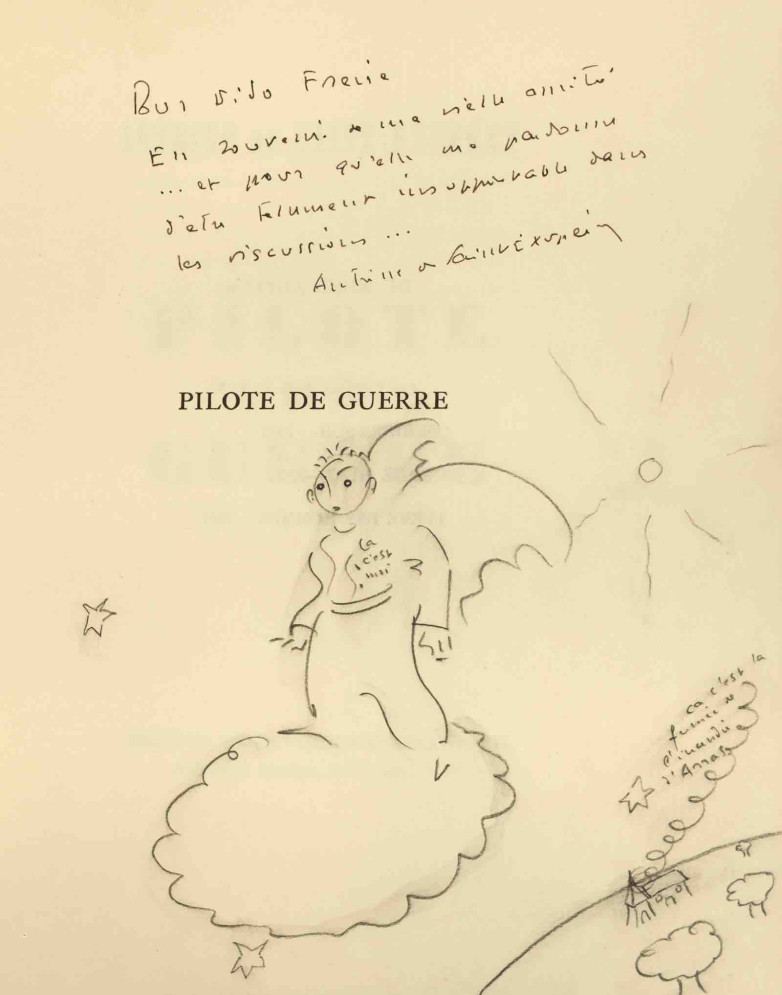 Pour
En souvenir de ma vieille amitié
... et pour qu'elle me pardonne
d'être tellement insupportable dans
les discussions ...
Antoine de Saint Exupéry
PILOTE DE GUERRE
ça
c'est
moi
ça c'est la
fumée de
l'incendie
d'Arras